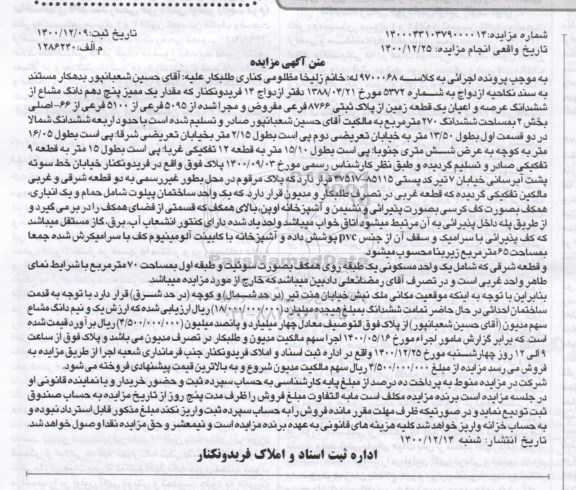 شماره مزایده: ۱۴۰۰۰۴۳۱۰۳۷۹۰۰۰۰۱۴
تاریخ ثبت: ۱۴۰۰/۱۲/۰۹
تاریخ واقعی انجام مزایده: ۱۴۰۰/۱۲/۲۵
م.الف: ۱۲۸۶۲۳۰
متن آگهی مزایده
به موجب پرونده اجرائی به کلاسه ۹۷۰۰۰۶۸ له: خانم زلیخا مظلومی کناری طلبکار علیه: آقای حسین شعبانپور بدهکار مستند
به سند نکاحیه ازدواج به شماره ۵۳۷۲ مورخ ۱۳۸۸/۰۴/۲۱ دفتر ازدواج ۱۴ فریدونکنار که مقدار یک ممیز پنج دهم دانگ مشاع از
ششدانگ عرصه و اعیان یک قطعه زمین از پلاک ثبتی ۸۷۶۶ فرعی مفروض و مجرا شده از ۵۰۹۵ فرعی از ۵۱۰۰ فرعی از ۶۶- اصلی
بخش ۲ بمساحت ششدانگ ۲۷۰ مترمربع به مالکیت آقای حسین شعبانپور صادر و تسلیم شده است با حدود اربعه ششدانگ شمالا
در دو قسمت اول بطول ۱۳/۵۰ متر به خیابان تعریضی دوم پی است بطول ۲/۱۵ متر بخیابان تعریضی شرقا: پی است بطول ۱۶/۰۵
متر به کوچه به عرض شش متری جنوبا: پی است بطول ۱۵/۱۰ متر به قطعه ۱۲ تفکیکی غربا: پی است بطول ۱۵ متر به قطعه ۹
تفکیکی صادر و تسلیم گردیده و طبق نظر کارشناس رسمی مورخ ۱۴۰۰/۰۹/۰۳ پلاک فوق واقع در فریدونکنار خیابان خط سوته
پشت آبرسانی خیابان ۷ تیر کد پستی ۸۵۱۱۵-۴۷۵۱۷ قرار دارد که پلاک مرقوم در محل بطور غیررسمی به دو قطعه شرقی و غربی
مالکین تفکیکی گردیده که قطعه غربی در تصرف طلبکار و مدیون قرار دارد. که یک واحد ساختمان پیلوت شامل حمام و یک انباری،
همکف بصورت کف کرسی بصورت پذیرائی و نشیمن و آشپزخانه اوپن، بالای همکف که قسمتی از فضای همکف را در بر می گیرد و
از طریق پله داخل پذیرائی به آن مرتبط میشود اتاق خواب میباشد واحد یاد شده دارای کنتور انشعاب آب، برق، گاز مستقل میباشد
که کف پذیرائی با سرامیک و سقف آن از جنس pvc پوشش داده و آشپزخانه با کابینت آلومینیوم کف با سرامیک‌رش شده جمعا
بمساحت ۶۵ متر مربع زیربنا محسوب میشود.
و قطعه شرقی که شامل یک واحد مسکونی یک طبقه روی همکف بصورت سوئیت و طبقه اول بمساحت ۷۰ مترمربع با شرایط نمای
ظاهر و احد غربی است و در تصرف آقای رمضانعلی دادبین میباشد که خارج از مورد مزایده میباشد.
بنابراین با توجه به اینکه موقعیت مکانی ملک نبش خیابان هفت تیر (در حد شمال) و کوچه (در حد شرق) قرار دارد با توجه به قدمت
ساختمان احداثی در حال حاضر تمامت ششدانگ بمبلغ هیجده میلیارد (۱۸/۰۰۰/۰۰۰/۰۰۰) ریال ارزیابی شده که ارزش یک و نیم دانگ مشاع
سهم مدیون (آقای حسین شعبانپور) از پلاک فوق التوصیف معادل چهار میلیارد و پانصد میلیون (۴/۵۰۰/۰۰۰/۰۰۰) ریال برآورد قیمت شده
است. که برابر گزارش مامور اجراء مورخ ۱۴۰۰/۰۵/۱۶ اجرا سهم مالکیت مدیون و طلبکار در تصرف مدیون می باشد و پلاک فوق از ساعت
۹ الی ۱۲ روز چهارشنبه مورخ ۱۴۰۰/۱۲/۲۵ واقع در اداره ثبت اسناد و املاک فریدونکنار جنب فرمانداری شعبه اجرا از طریق مزایده به
فروش می رسد مزایده از مبلغ ۴/۵۰۰/۰۰۰/۰۰۰ ریال سهم مالکیت مدیون شروع و به بالاترین قیمت پیشنهادی فروخته می شود.
شرکت در مزایده منوط به پرداخت ده درصد از مبلغ پایه کارشناسی به حساب سپرده ثبت و حضور خریدار و یا نماینده قانونی او
در جلسه مزایده است برنده مزایده مکلف است مابه التفاوت مبلغ فروش را ظرف مدت پنج روز از تاریخ مزایده به حساب صندوق
ثبت تودیع نماید و در صورتیکه ظرف مهلت مقرر مانده فروش را به حساب سپرده ثبت واریز نکند مبلغ مذکور قابل استرداد نبوده و
به حساب خزانه واریز خواهد شد کلیه هزینه های قانونی به عهده برنده مزایده است و نیم عشر و حق مزایده نقدا وصول خواهد شد.
تاریخ انتشار: شنبه ۱۴۰۰/۱۲/۱۴
اداره ثبت اسناد و املاک فریدونکنار